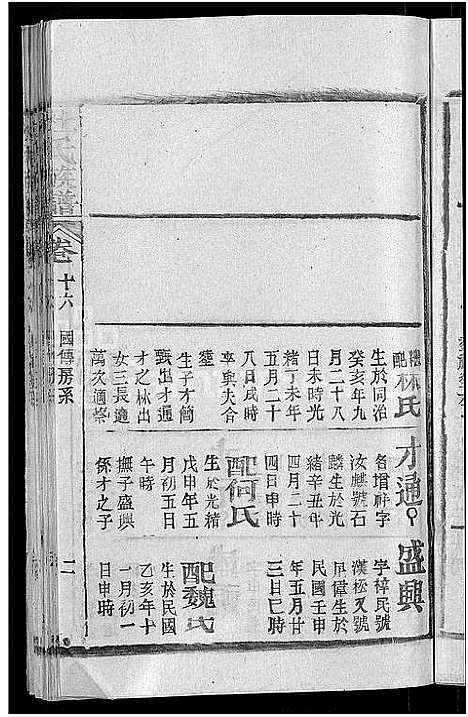 繼配林氏
生於同治
癸亥年九
月二十八
日未時光
緒丁未年
五月二十
八日戌時
卒與夫合
塋
生子才簡
甄出才通
才之林出
女三長適
萬次適柴
才通
名增祥字
汝麒號石
麟生於光
緒辛丑年
四月二十
四日申時
配何氏
生於光緒
戊申年五
月初五日
午時
撫子盛興
係才之子
盛興
字梓民號
漢松又號
早偉生於
民國壬申
年五月廿
三日巳時
配魏氏
生於民國
乙亥年十
一月初一
日申時
氏族譜
卷十六
國傳房系
二